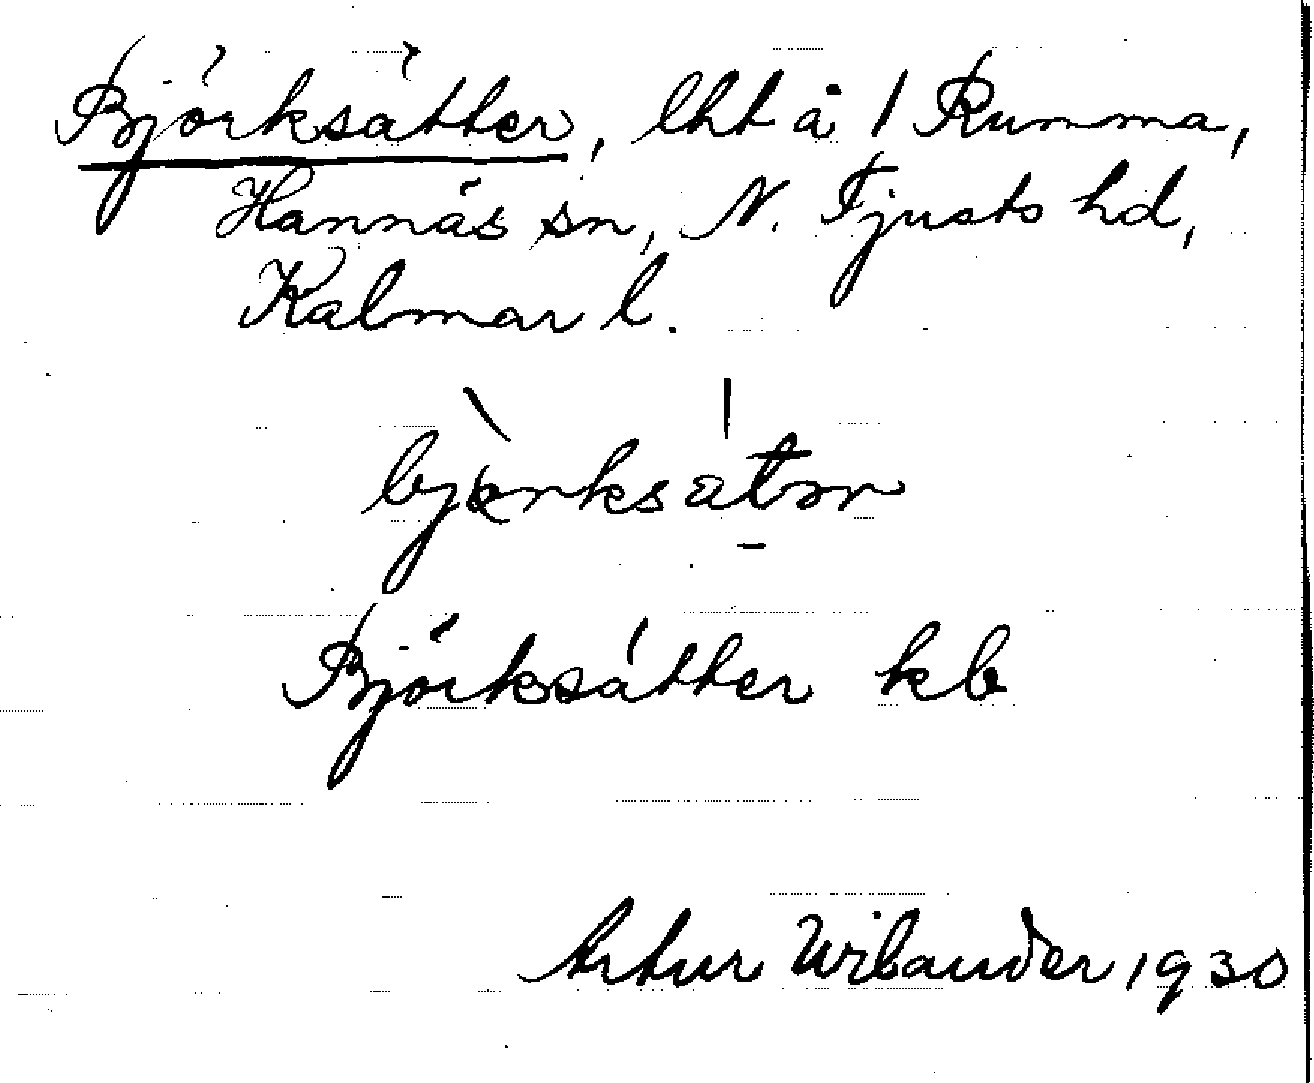 Björksätter, lht å 1 Rumma,
Hannäs sn, N. Tjusts hd,
Kalmar l.
Björksätter kb
Artur Wilander 1930